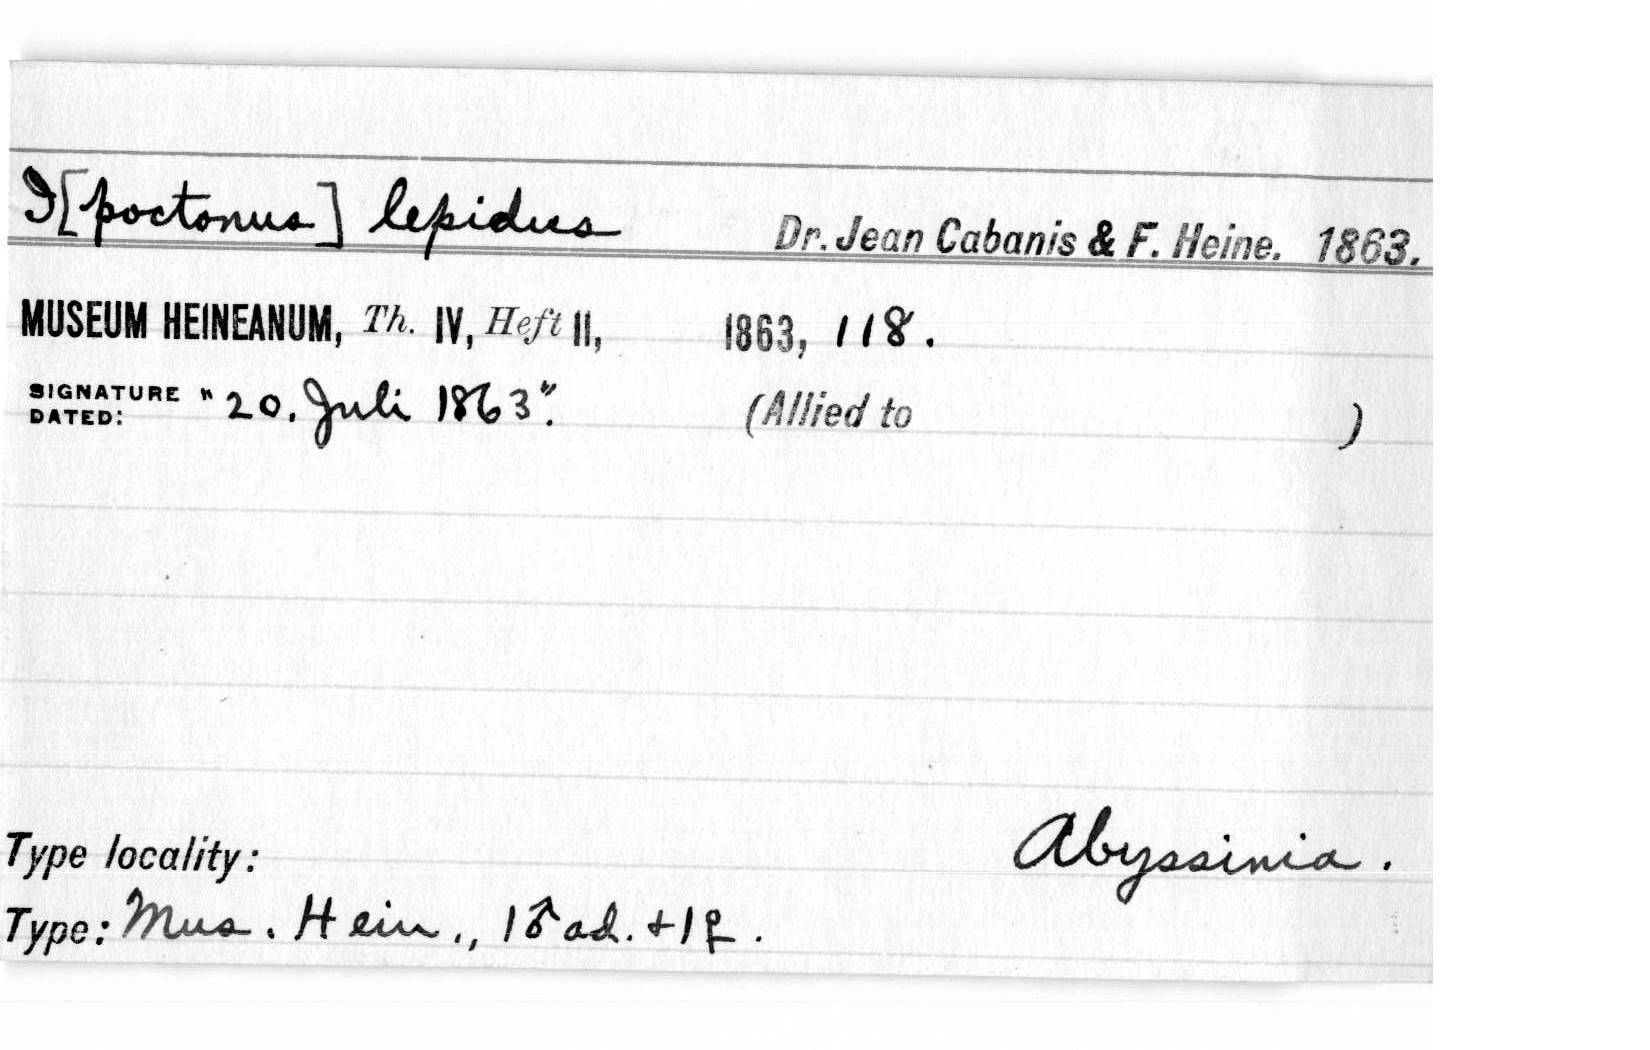 I[poctonus] lepidus Dr. Jean Cabanis & F. Heine. 1863.
MUSEUM HEINEANUM, Th. IV, Heft II, 1863, 118.
SIGNATURE DATED: "20. Juli 1863". (Allied to )
Type locality: Abyssinia.
Type: Mus. Hein., 1♂ad. + 1♀.